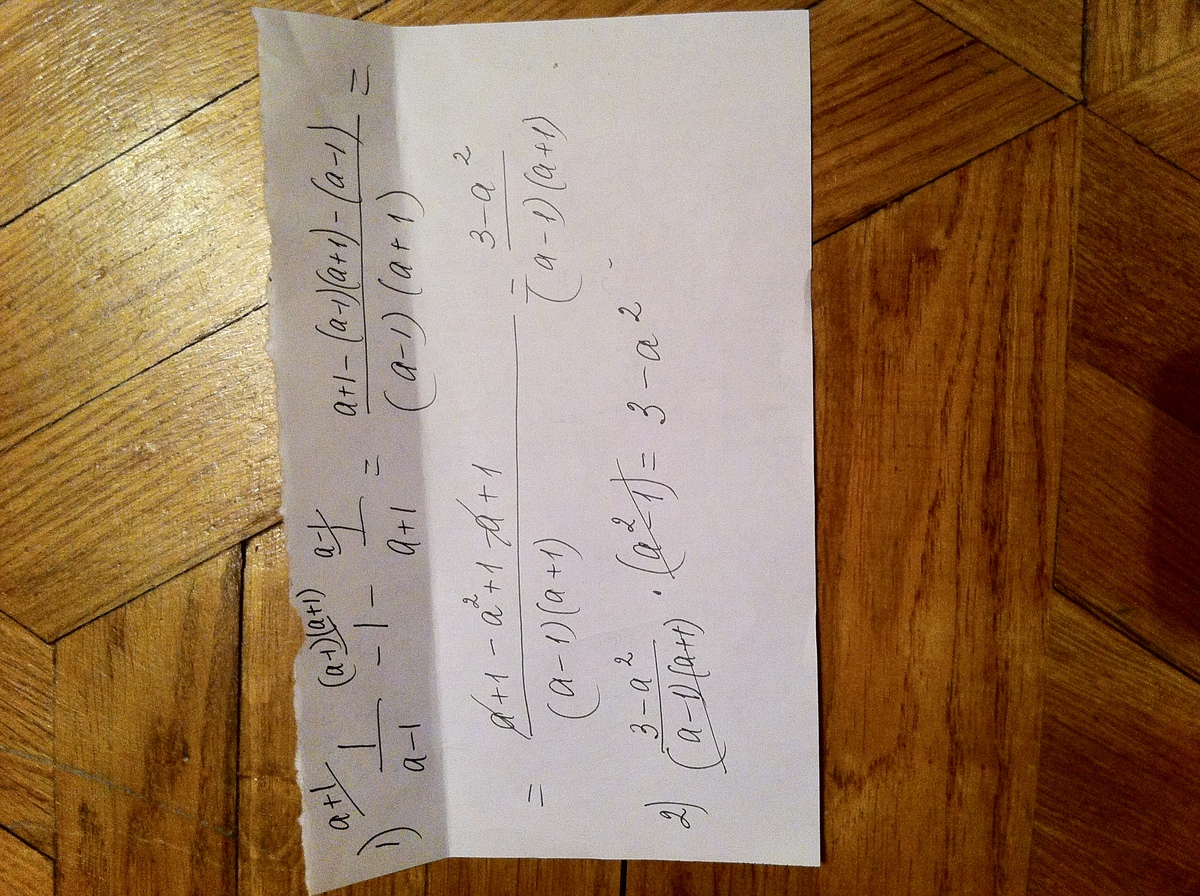 1) a+1/ 1/(a-1) (a-1)(a+1)/ - 1 - a-1/ 1/(a+1) = (a+1-(a-1)(a+1)-(a-1))/((a-1)(a+1)) =
= (a+1-a²+1-a+1)/((a-1)(a+1)) = (3-a²)/((a-1)(a+1))
2) (3-a²)/((a-1)(a+1)) · (a²-1) = 3-a²